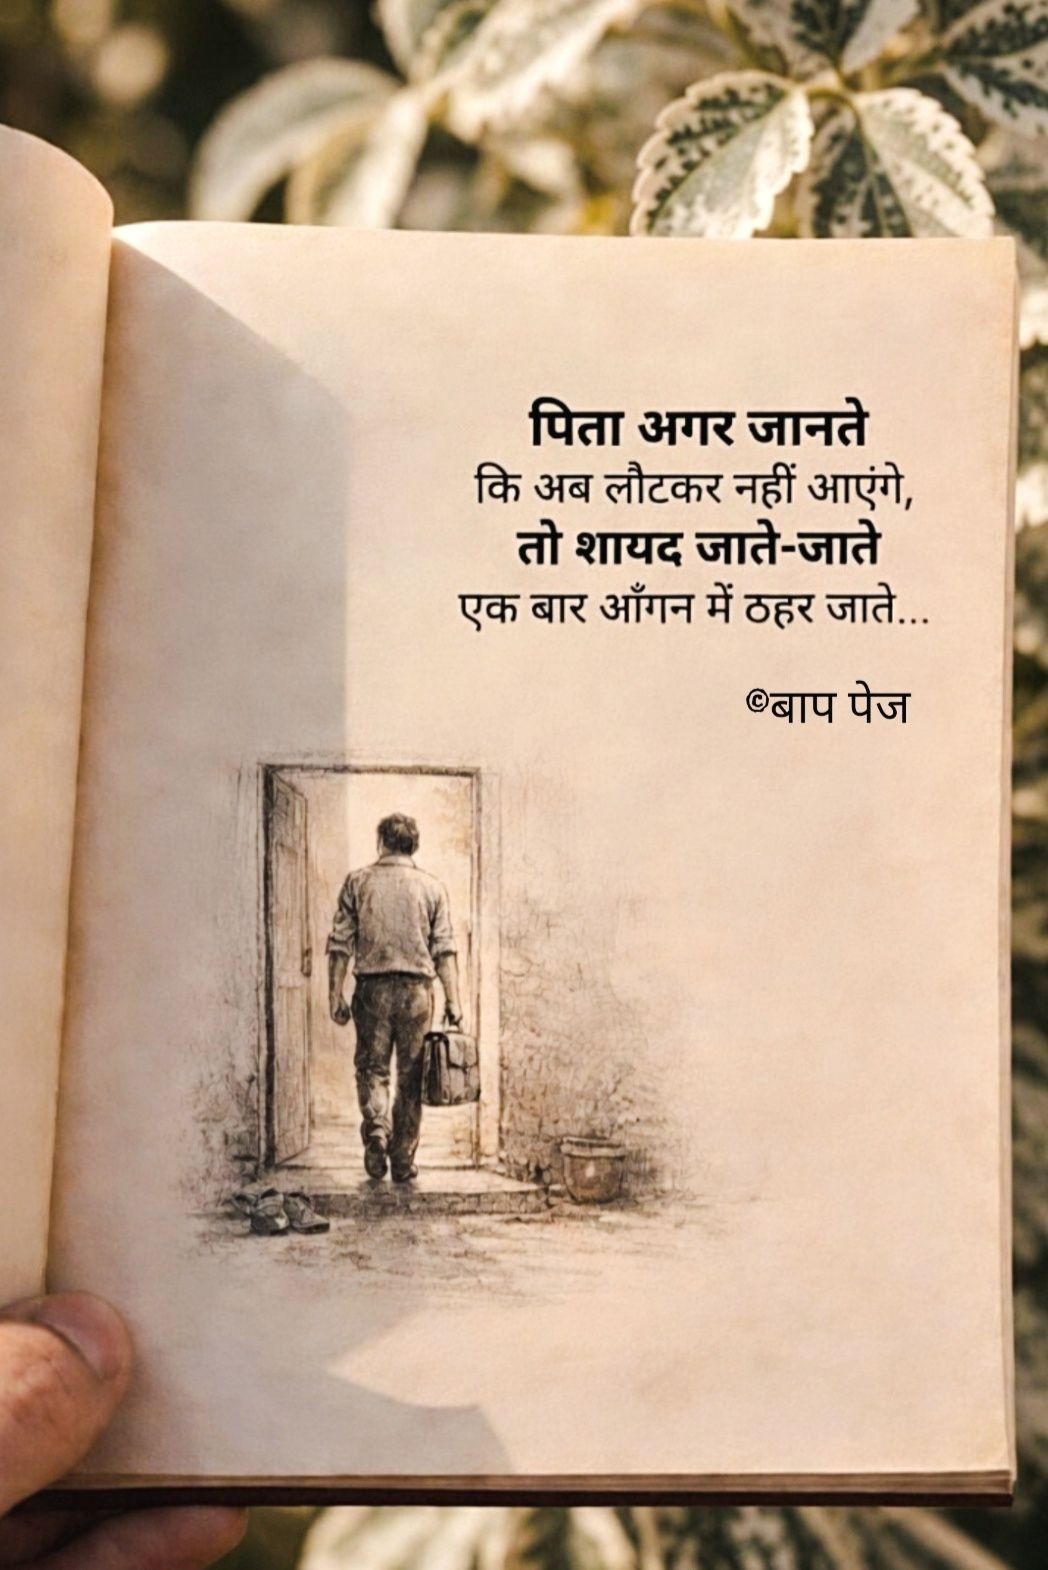 पिता अगर जानते
कि अब लौटकर नहीं आएंगे,
तो शायद जाते-जाते
एक बार आँगन में ठहर जाते...
©बाप पेज